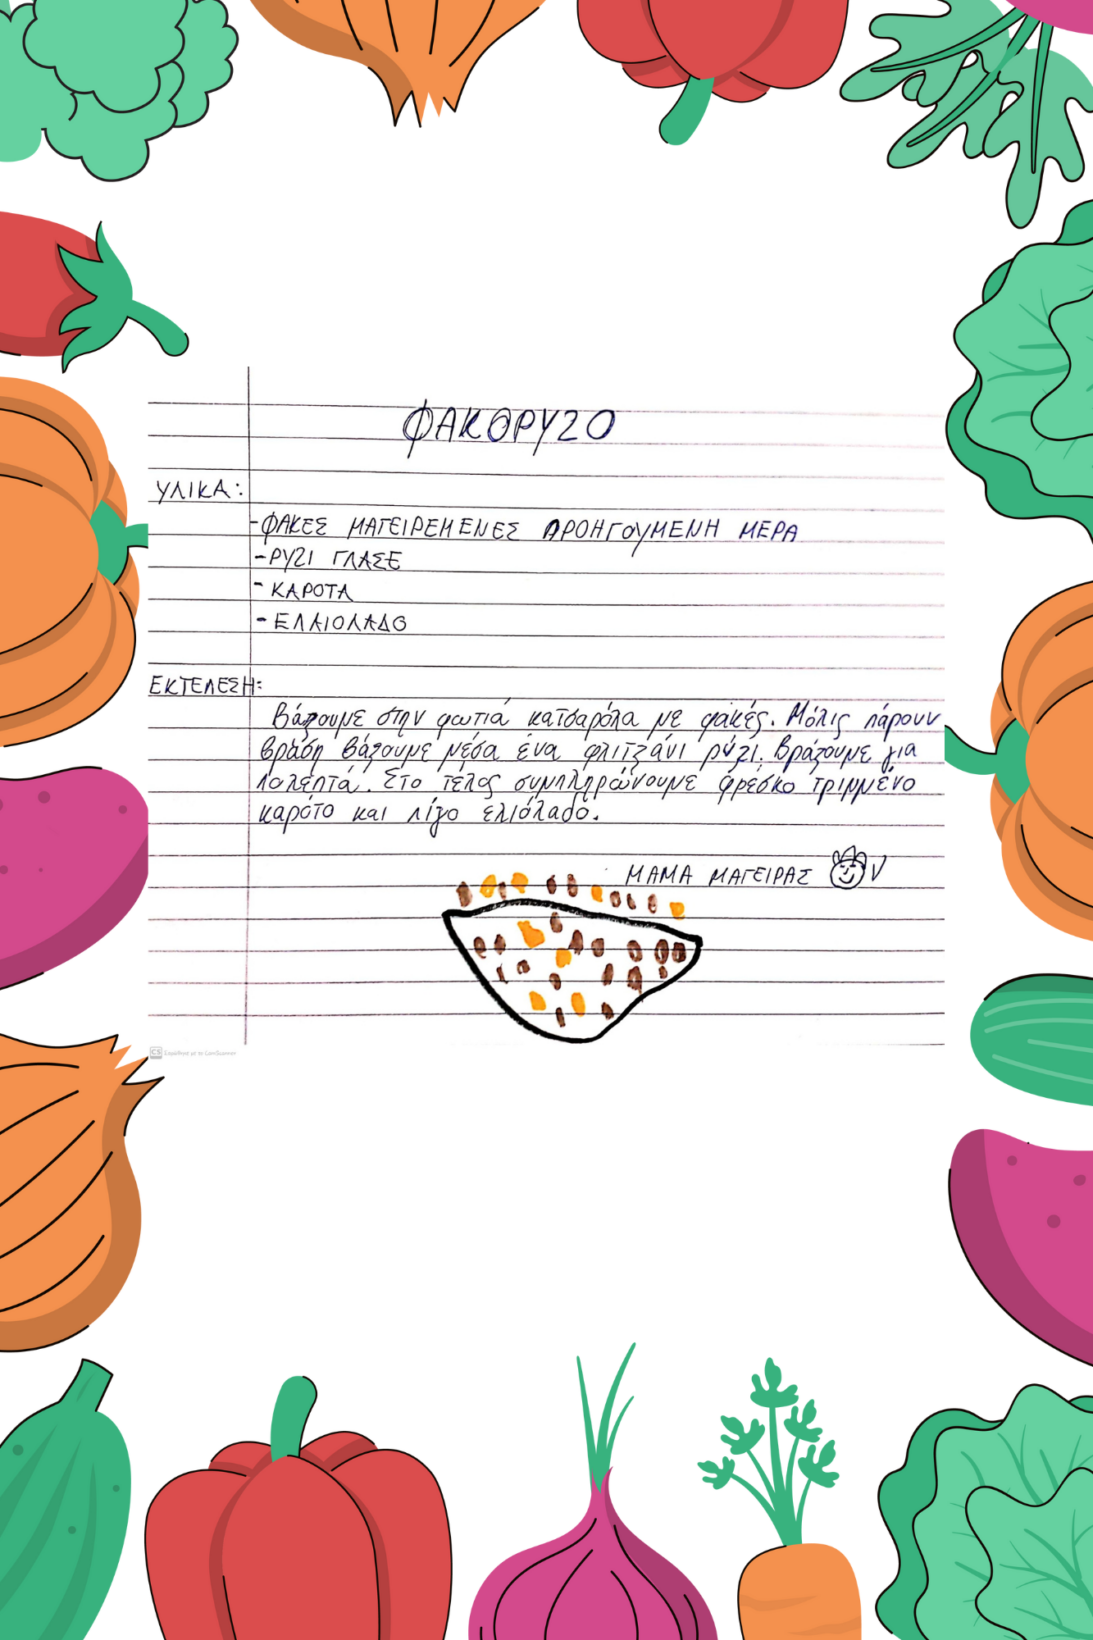 ΦΑΚΟΡΥΖΟ
ΥΛΙΚΑ:
-ΦΑΚΕΣ ΜΑΓΕΙΡΕΜΕΝΕΣ ΠΡΟΗΓΟΥΜΕΝΗ ΜΕΡΑ
-ΡΥΖΙ ΓΛΑΣΕ
- ΚΑΡΟΤΑ
- ΕΛΑΙΟΛΑΔΟ
ΕΚΤΕΛΕΣΗ:
Βάζουμε στην φωτιά κατσαρόλα με φακές. Μόλις πάρουν
βράση βάζουμε μέσα ένα φλιτζάνι ρύζι. Βράζουμε για
10λεπτά. Στο τέλος συμπληρώνουμε φρέσκο τριμμένο
καρότο και λίγο ελιόλαδο.
ΜΑΜΑ ΜΑΓΕΙΡΑΣ
CS Σαρώθηκε με το CamScanner